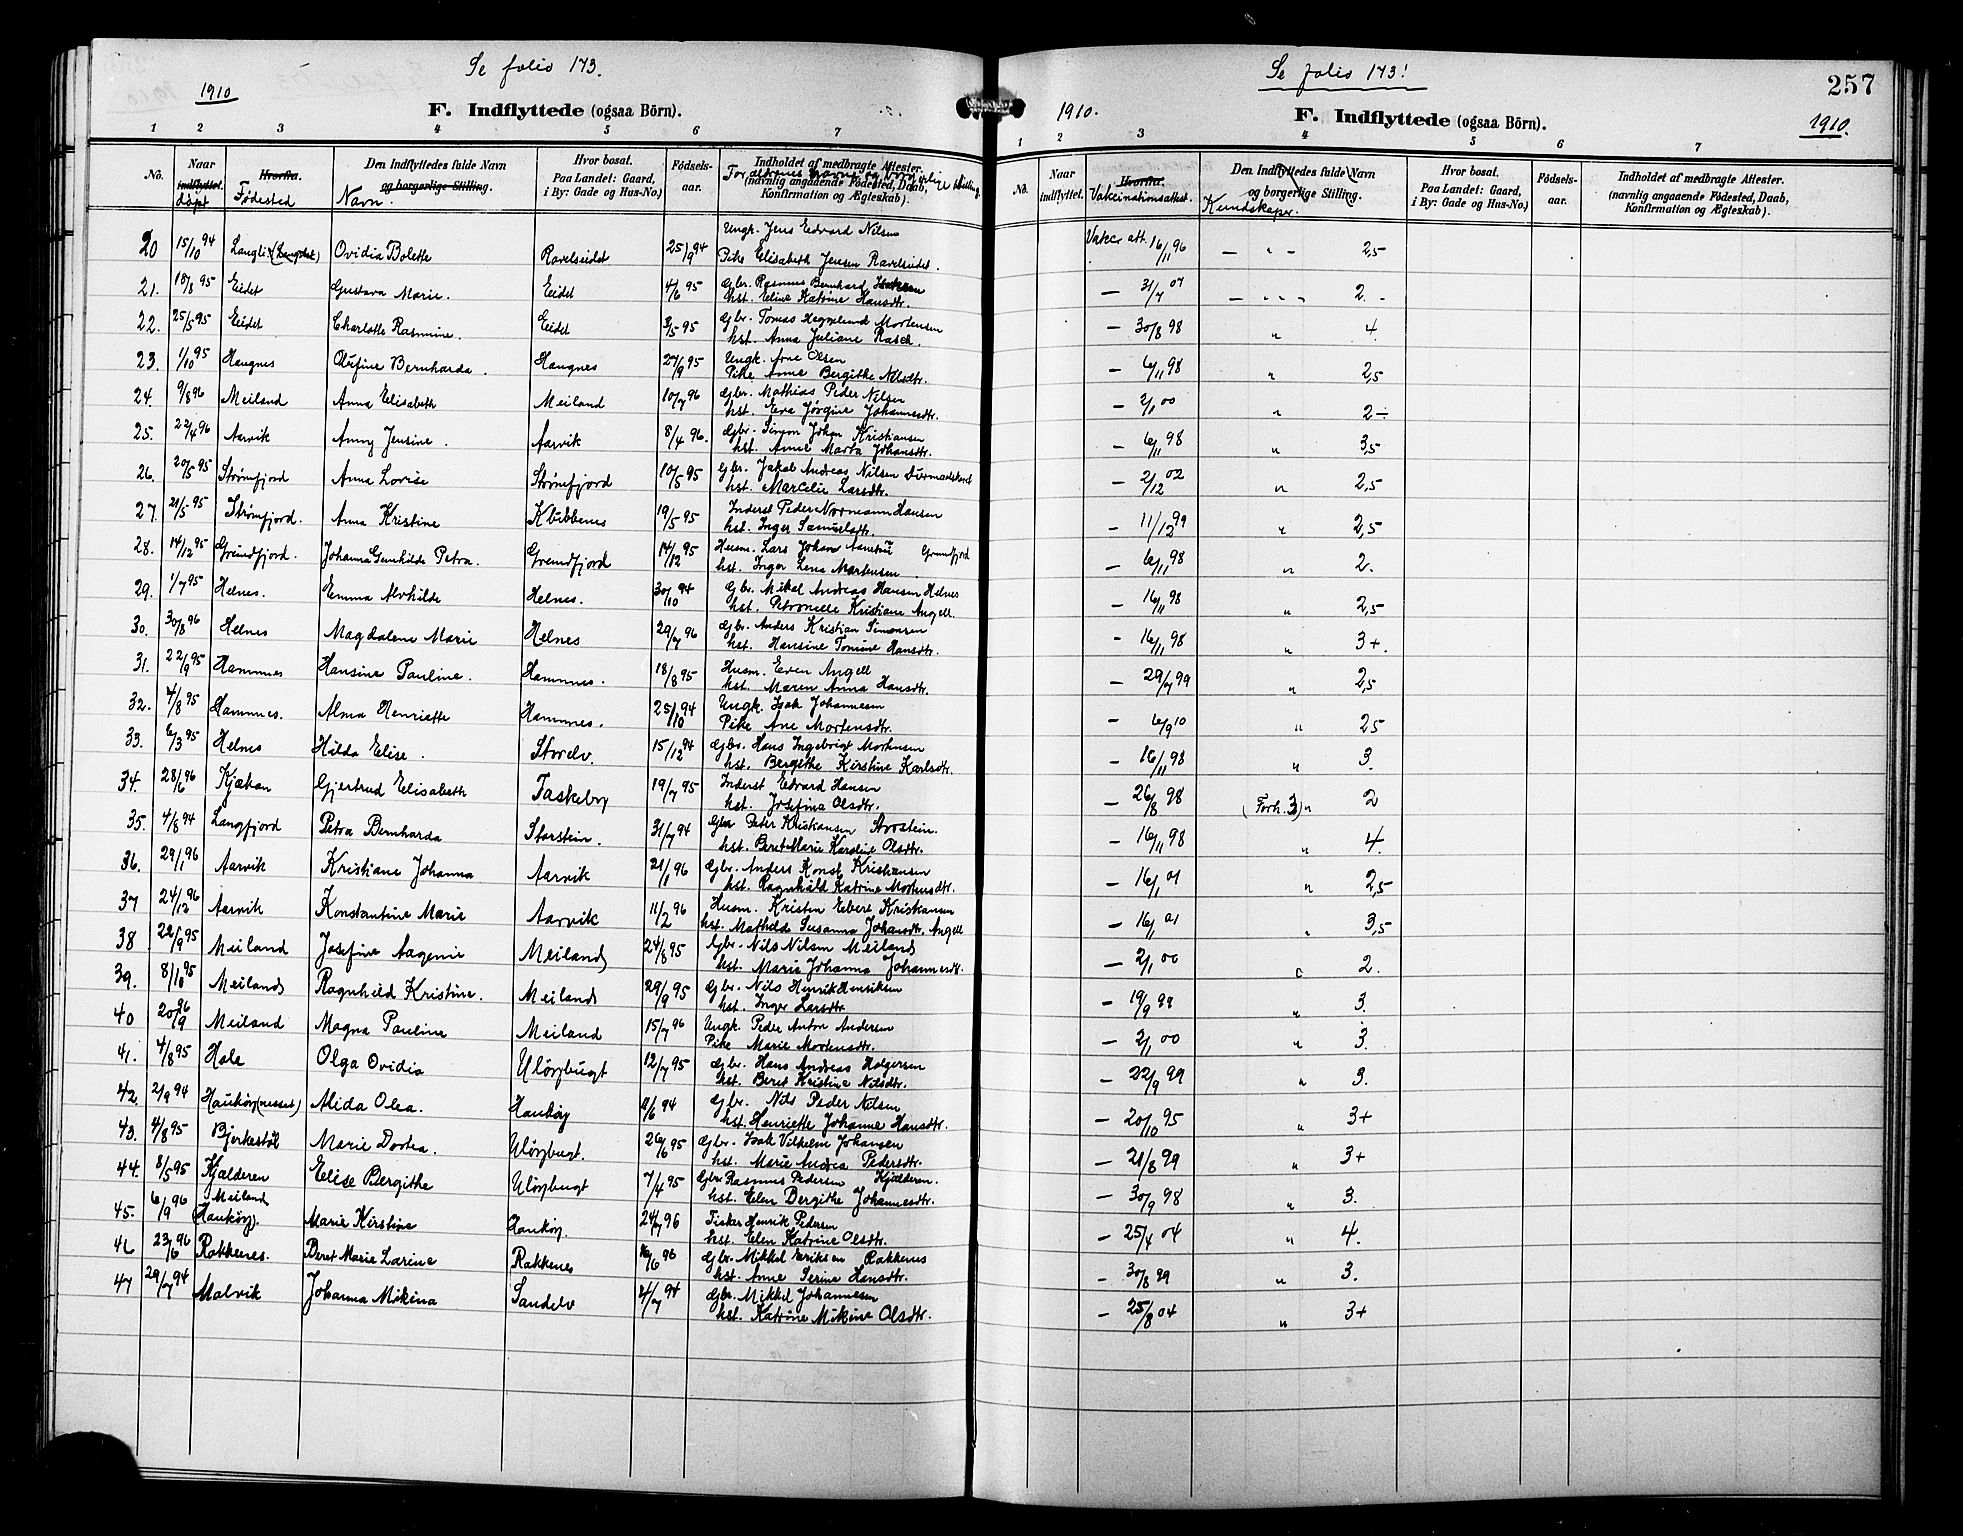 Se folio 173.
1910
F. Indflyttede (ogsaa Börn).
1 2 3 4 5 6 7
No. Naar indflyttet. döpt Hvorfra. Födested Den Indflyttedes fulde Navn og borgerlige Stilling. Navn. Hvor bosat. Paa Landet: Gaard, i By: Gade og Hus-No.) Födsels-aar. Indholdet af medbragte Attester. (navnlig angaaende Födested, Daab, Konfirmation og Ægteskab). Forældrenes navne og borgerlige stilling
20 15/10 94 Langli (Langslet) Ovidia Bolette Ravelseidet 25/9 94 Ungk. Jens Edvard Nilsen
Pike Elisabeth Jensen Ravelseidet.
21. 18/8 95 Eidet Gustava Marie. Eidet 4/6 95 Gbr. Rasmus Bernhard Isaksen
hst. Eline Katrine Hansdtr.
22. 25/5 95 Eidet Charlotte Rasmine. Eidet 3/5 95 Gbr. Tomas Heggelund Mortensen
hst. Anna Juliane Rasch.
23. 1/10 95 Haugnes Olufine Bernharda. Haugnes 27/9 95 Ungk. Arne Olsen
Pike Anne Bergithe Nilsdtr.
24. 9/8 96 Meiland Anna Elisabeth Meiland 10/7 96 Gbr. Mathias Peder Nilsen
hst. Eva Jørgine Johannesdtr.
25. 22/4 96 Aarvik Anny Jensine. Aarvik 8/4 96. Gbr. Simon Johan Kristiansen
hst. Anne Marta Johansdtr.
26. 20/5 95 Strømfjord Anna Lovise Strømfjord 10/5 95 Gbr. Jakob Andreas Nilsen
hst. Marcelie Larsdtr.
27. 21/5 95 Strømfjord. Anna Kristine Kbibbenes 19/5 95 Inderst Peder Normann Hansen
hst. Inger Samuelsdtr.
28. 14/12 95 Grundfjord. Johanna Gunhilde Petra. Grundfjord 14/12 95 Husm. Lars Johan Grundfjord
hst. Inger Lena Mortensen.
29. 1/7 95 Helnes. Emma Alvhilde Helnes. 30/10 94 Gbr. Mikal Andreas Hansen Helnes
hst. Petronelle Kristiane Angell.
30. 30/8 96 Helnes Magdalene Marie Helnes 29/7 96 Gbr. Anders Kristian Simonsen
hst. Hansine Tomine Hansdtr.
31. 22/9 95 Hamnes Hansine Pauline. Hamnes. 18/8 95 Husm. Even Angell
hst. Maren Anna Hansdtr.
32. 4/8 95 Hamnes. Alma Henriette Hamnes. 25/10 94 Ungk. Isak Johannesen
Pike Ane Mortensdtr.
33. 6/3 95 Helnes Hilda Elise. Storelv. 15/12 94 Gbr. Hans Ingebrigt Mortensen
hst. Bergithe Kirstine Karlsdtr.
34. 28/6 96 Kjækan Gjertrud Elisabeth Taskeby 19/7 95 Inderst Edvard Hansen
hst. Josefina Olsdtr.
35. 4/8 94 Langfjord Petra Bernharda Storstein. 31/7 94 Gbr Peter Kristiansen Storstein.
hst. Beret Marie Karoline Olsdtr.
36. 29/1 96 Aarvik Kristiane Johanna Aarvik 21/1 96 Gbr. Anders Konst. Kristiansen
hst. Ragnhild Katrine Mortensdtr.
37 24/12 96 Aarvik Konstantine Marie Aarvik 11/2 96 Husm. Kristen Ebert Kristiansen
hst. Mathilde Susanna Johansdtr. Angell
38 22/9 95 Meiland Josefine Aagenie Meiland 24/8 95 Gbr. Nils Nilsen Meiland
hst. Marie Johanna Johannesdtr.
39. 8/10 95 Meiland Ragnhild Kristine. Meiland 29/9 95 Gbr. Nils Henrik Henriksen
hst. Inger Larsdtr
40 20/9 96 Meiland Magna Pauline Meiland 15/7 96 Ungk. Peder Anton Andersen
Pike Marie Mortensdtr.
41. 4/8 95 Hala Olga Ovidia Uløybugt 12/7 95 Gbr. Hans Andreas Holgersen
hst. Beret Kristine Nilsdtr.
42. 2/9 94 Haukøy (nesset) Alida Olea. Haukøy 11/6 94 Gbr. Nils Peder Nilsen
hst. Henriette Johanne Hansdtr.
43. 4/8 95 Bjerkestøl Marie Dortea. Uløybugt. 26/6 95 Gbr. Isak Vilhelm Johansen
hst. Marie Andrea Pedersdtr.
44. 8/5 95 Kjælderen Elise Bergithe Uløybugt 7/4 95 Gbr Rasmus Pedersen Kjælderen.
hst. Elen Bergithe Johannesdtr.
45. 6/9 96 Meiland (Haukøy). Marie Kirstine Haukøy. 24/7 96 Fisker Henrik Pedersen
hst. Elen Katrine Olsdtr.
46 23/6 96 Rakkenes. Beret Marie Larine Rakkenes 16/6 96 Gbr. Mikkel Eriksen Rakkenes
hst. Anne Serine Hansdtr.
47 29/7 94 Malvik Johanna Mikina Sandelv 4/7 94 Gbr. Mikkel Johannesen
hst. Katrine Mikine Olsdtr.
Se folio 173!
257
1910.
F. Indflyttede (ogsaa Börn).
1910.
1 2 3 4 5 6 7
No. Naar indflyttet. Hvorfra. Vakcinationsattest. Den Indflyttedes fulde Navn og borgerlige Stilling. Kundskaper. Hvor bosat. Paa Landet: Gaard, i By: Gade og Hus-No.) Födsels-aar. Indholdet af medbragte Attester. (navnlig angaaende Födested, Daab, Konfirmation og Ægteskab).
Vakc. att. 16/11 96 — " — 2,5
— 31/7 07 — " — 2.
— 30/8 98 " 4.
— 6/11 98 " 2,5
— 2/1 00 " 2÷
— 6/11 98 " 3,5
— 2/12 02 " 2,5
— 11/12 99 " 2,5
— 6/11 98 " 2.
— 16/11 98 " 2,5
— 16/11 98 " 3+.
— 29/7 99 " 2,5
— 6/9 10 " 25
— 16/11 98 " 3.
— 26/8 98 (Forh. 3) " 2
— 16/11 98 " 4.
— 16/1 01 " 2,5
— 16/1 01 " 3,5
— 2/1 00 " 2.
— 19/9 99 " 3.
— 2/1 00 " 3.
— 22/9 99 " 3.
— 20/10 95 " 3+
— 21/8 99 " 3+
— 30/9 98 " 3.
— 25/4 04 " 4.
— 30/8 99 " 3.
— 25/8 04 " 3+